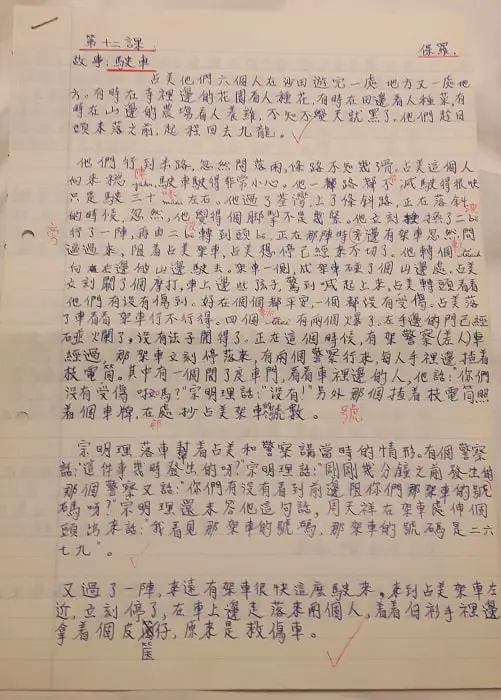 第十二課 保羅.
故事:駛車
占美他們六個人在沙田遊完一處地方又一處地
方。有時在寺裡邊的花園看人種花,有時在田邊看人種菜,有
時在山邊的農場看人養雞,不知不覺天就黑了。他們趁日
頭未落之前,起程回去九龍。
他們行到半路,忽然間落雨,條路不知幾滑。占美這個人
向來駛車駛得非常小心。他一路都不減駛得很快
只是駛二十左右。他過了荃灣,上了條斜路,正在落斜
的時候,忽然,他覺得個腳掣不是幾緊。他立刻換了二
行了一陣,再由二轉到頭,正在那陣時旁邊有架車忽然間
逼過來,阻着占美架車,占美想停已經來不切了。他轉個
向左邊他山邊駛去。架車一側,成架車碰了個山邊處。占美
立刻關了個摩打,車上邊些孩子,驚到喊起上來,占美轉頭看看
他們有沒有傷到。好在個個都平安,一個都沒有受傷。占美落
了車看看架車行不行得。四個有兩個爆了。左手邊的門已經
碰爛了,沒有法子開得了。正在這個時候,有架警察(差人)車
經過,那架車立刻停落來,有兩個警察行來,每人手裡邊揸着
枝電筒。其中有一個開了度車門,看看車裡邊的人,他話:"你們
沒有受傷啦嗎?"宗明理話:"沒有!"另外那個揸着枝電筒照
着個車牌,在處抄占美架車號數。 號
宗明理落車幫着占美和警察講當時的情形。有個警察
話:"這件事幾時發生的呀?"宗明理話:"剛剛幾分鐘之前發生的"
那個警察又話:"你們有沒有看到前邊阻你們那架車的號
碼呀?"宗明理還未答他這句話,周天祥在架車處伸個
頭出來話:"我看見那架車的號碼,那架車的號碼是二六
七九"。
又過了一陣,來遠有架車很快這麼駛來,來到占美架車左
近,立刻停了,在車上邊走落來兩個人,着着白衫手裡邊
拿着個皮篋仔,原來是救傷車。
篋